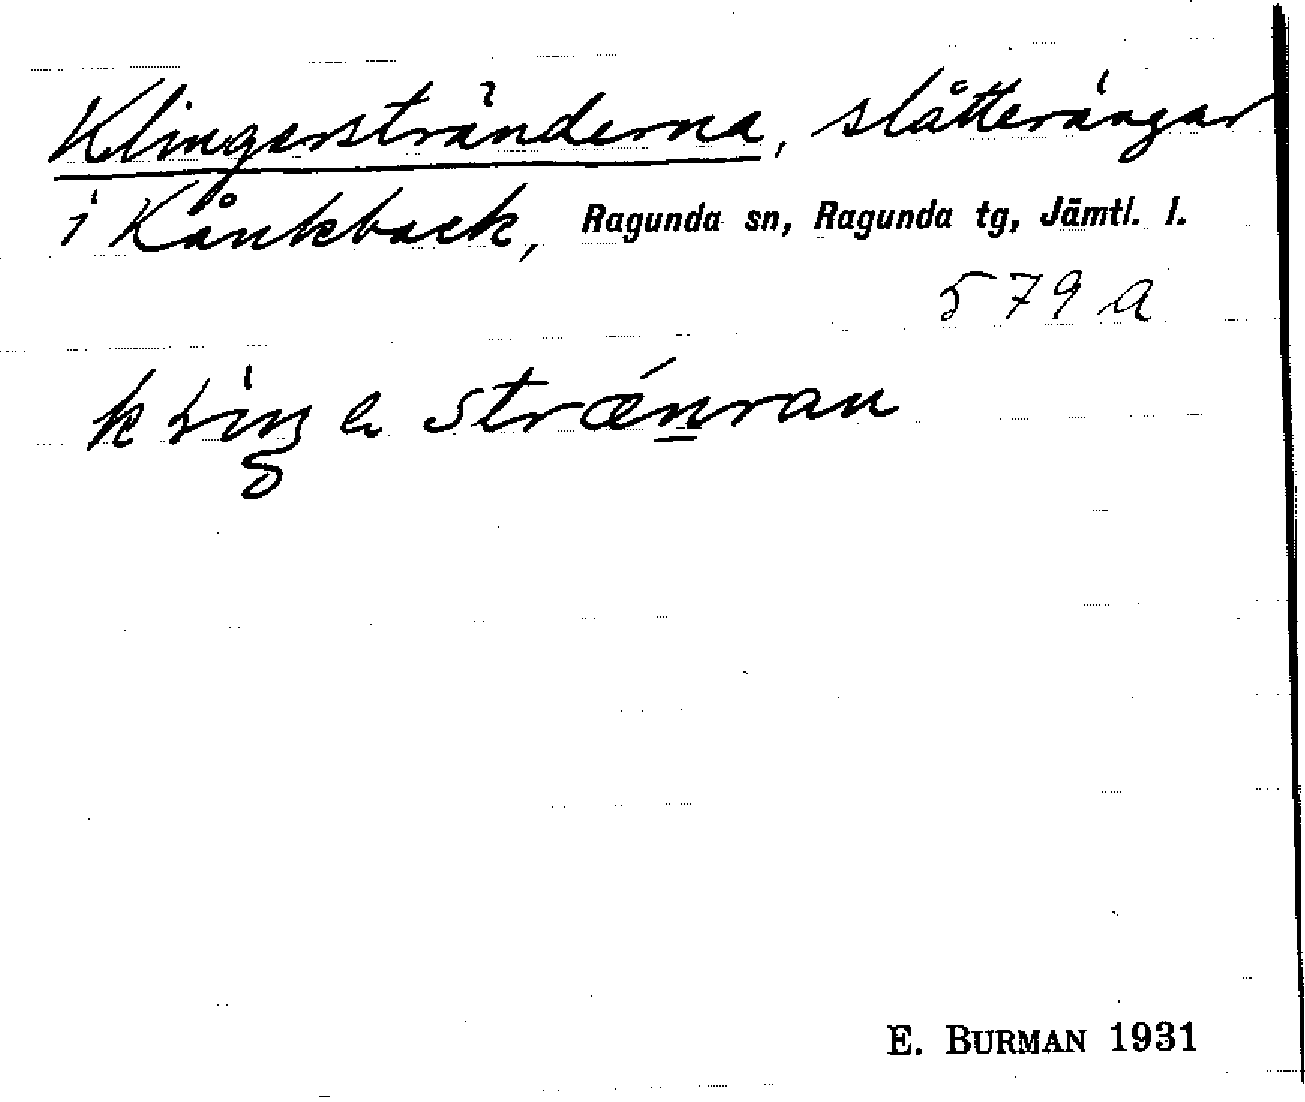 Klingerstränderna, slåtterängar
i Kånkback, Ragunda sn, Ragunda tg, Jämtl. l.
579 a
E. BURMAN 1931